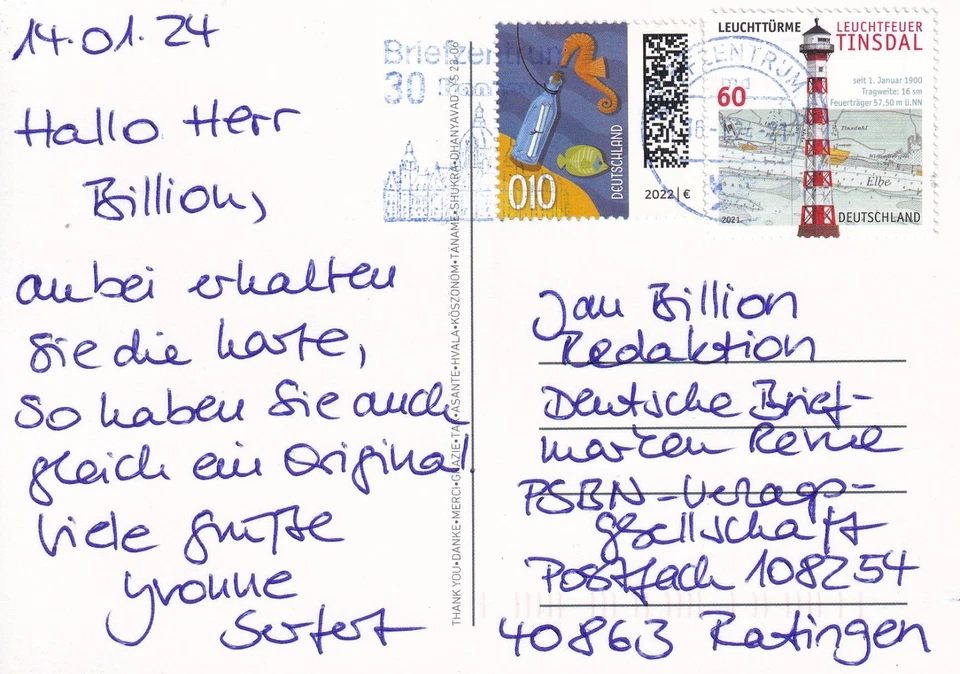 14.01.24
Hallo Herr
Billion,
anbei erhalten
Sie die Karte,
so haben Sie auch
gleich ein Original.
Viele Grüße
Yvonne
Seifert
THANK YOU•DANKE•MERCI•GRAZIE•TAK•ASANTE•HVALA•KÖSZÖNÖM•TANAME•SHUKRA•DHANYAVAD VS 23-06
Briefzentrum
30
010
DEUTSCHLAND
2022 | €
BRIEFZENTRUM
LEUCHTTÜRME
LEUCHTFEUER
TINSDAL
seit 1. Januar 1900
Tragweite: 16 sm
Feuerträger 57,50 m ü.NN
60
Elbe
2021
DEUTSCHLAND
Jan Billion
Redaktion
Deutsche Brief-
marken Revue
PSBN-Verlags-
gesellschaft
Postfach 108254
40863 Ratingen